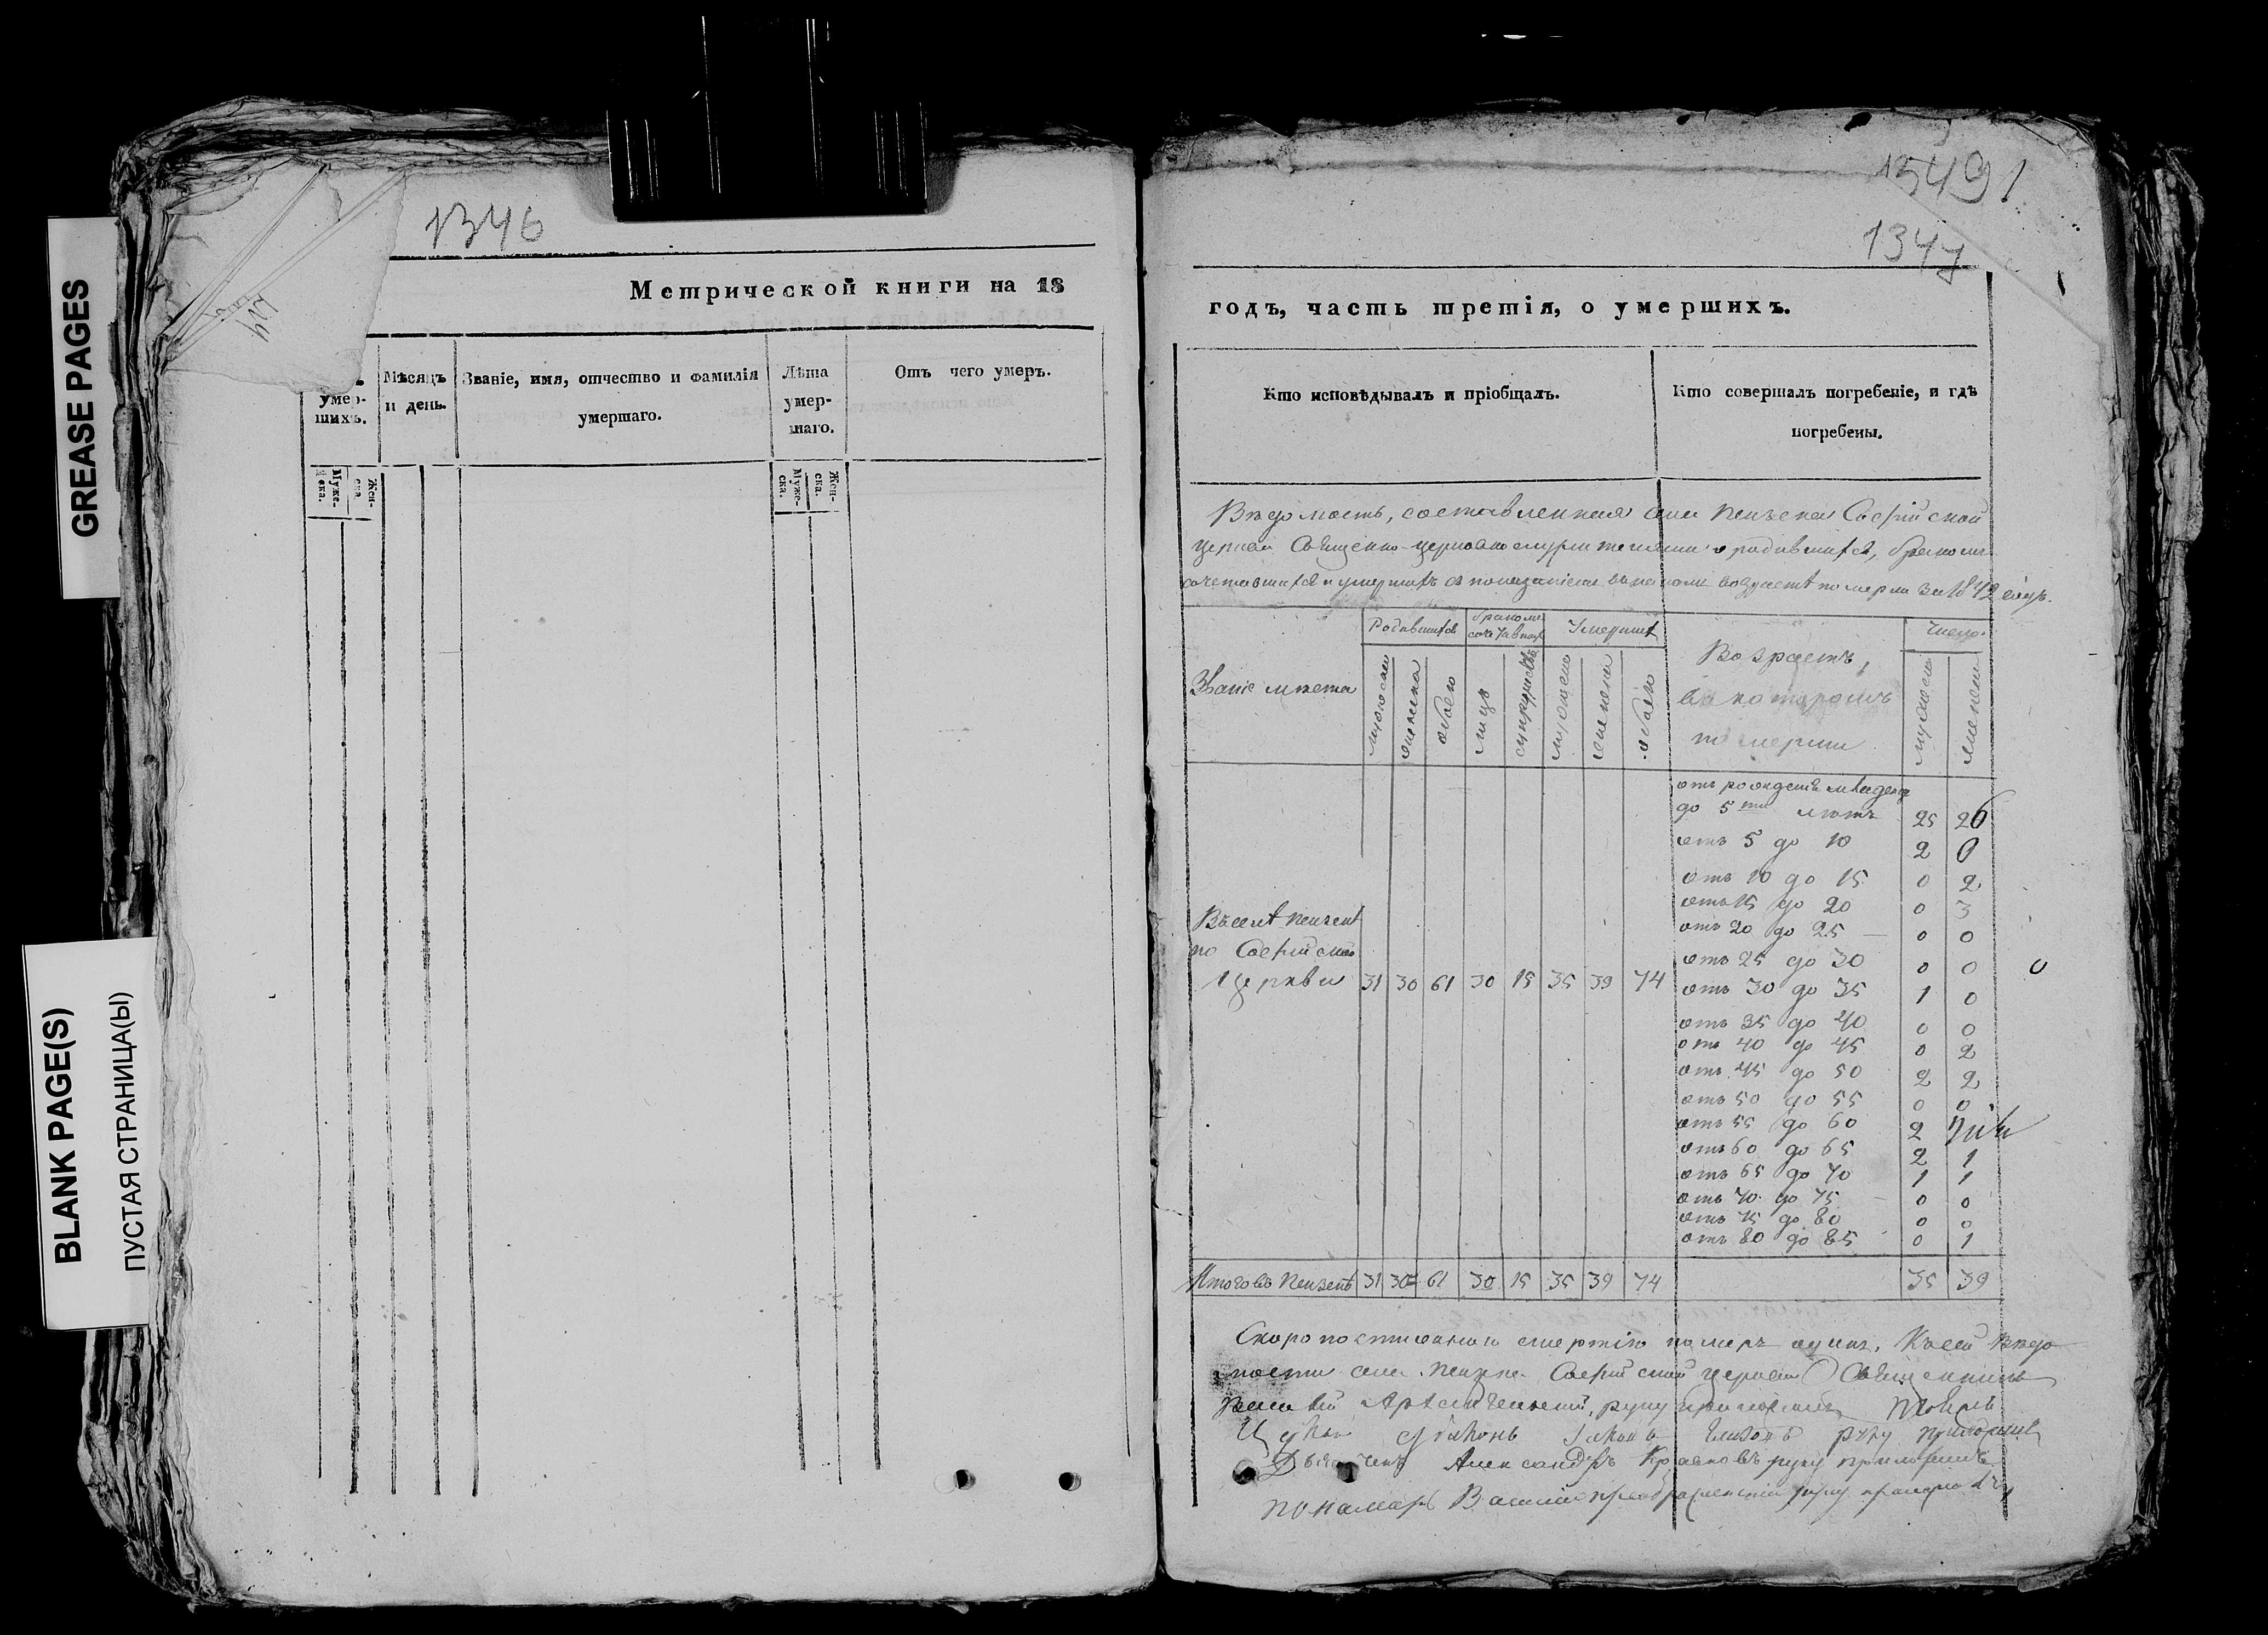 GREASE PAGES
BLANK PAGE(S)
ПУСТАЯ СТРАНИЦА(Ы)
1346
Метрической книги на 18
умер-
шихъ.
Мѣсяцъ
и день.
Званіе, имя, отчество и фамилія
умершаго.
Лѣта
умер-
шаго.
Отъ чего умеръ.
Муже-
ска.
Жен-
ска.
Муже-
ска.
Жен-
ска.
1347
годъ, часть третія, о умершихъ.
Кто исповѣдывалъ и пріобщалъ.
Кто совершалъ погребеніе, и гдѣ
погребены.
Вѣдомость, составленная села Пензена Софійской
церкви Священно-церковнослужителями о родившихся, бракомъ
сочетавшихся и умершихъ съ показаніемъ въ какомъ возрастѣ померли за 1842 годъ.
Званіе мѣста
Родившихся
бракомъ
сочетавших
Умершихъ
Возрастъ,
въ которомъ
померли
Число
мужеска
женска
обоего
лицъ
супружествъ
мужеска
женска
обоего
мужеска
женска
отъ рожденія младенца
до 5ти лѣтъ 25 26
отъ 5 до 10 2 0
отъ 10 до 15 0 2
отъ 15 до 20 0 3
отъ 20 до 25 0 0
отъ 25 до 30 0 0
отъ 30 до 35 1 0
отъ 35 до 40 0 0
отъ 40 до 45 0 2
отъ 45 до 50 2 2
отъ 50 до 55 0 0
отъ 55 до 60 2
отъ 60 до 65 2 1
отъ 65 до 70 1 1
отъ 70 до 75 0 0
отъ 75 до 80 0 0
отъ 80 до 85 0 1
Въ селѣ Пензенѣ
по Софійской
Церкви 31 30 61 30 15 35 39 74
Итого въ Пензенѣ 31 30 61 30 15 35 39 74 35 39
Скоропостижною смертію померъ одинъ. Къ сей вѣдо
мости села Софійской церкви Священникъ
руку приложилъ
діаконъ руку приложилъ
Дьячекъ Александръ руку приложилъ
пономарь Василій Преображенскій руку приложилъ